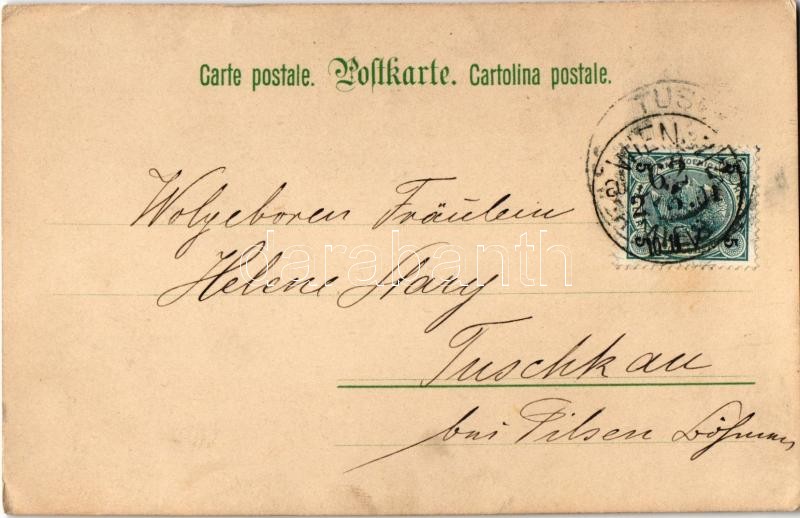 Carte postale. Postkarte. Cartolina postale.
TUS
WIEN
5 5
5 5
Wolgeboren Fräulein
Helene Nary
Tuschkau
bei Pilsen Böhmen
darabanth